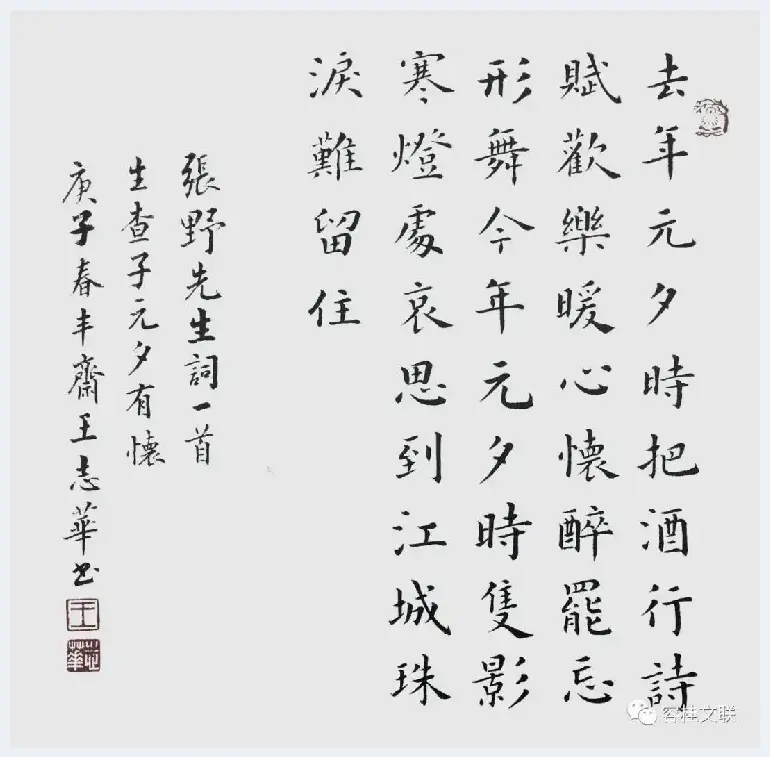 去年元夕時把酒行詩
賦歡樂暖心懷醉罷忘
形舞今年元夕時隻影
寒燈處哀思到江城珠
淚難留住
張野先生詞一首
生查子元夕有懷
庚子春丰齋王志華书
王
志華
容桂文联